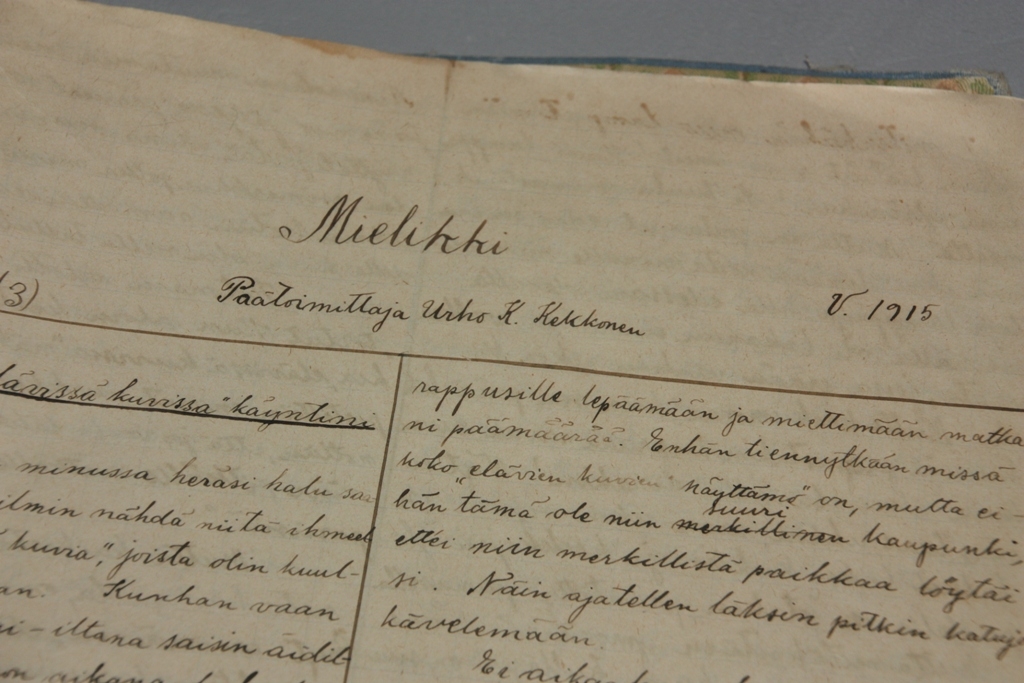 Mielikki
3)
Päätoimittaja Urho K. Kekkonen
V. 1915
lävissä kuvissa" käyntini
minussa heräsi halu saa
ilmin nähdä niitä ihmeel
kuvia", joista olin kuul-
an. Kunhan vaan
i-iltana saisin äidil-
on aikana
rappusille lepäämään ja miettimään matka
ni päämäärää. Enhän tiennytkään missä
koko „elävien kuvien näyttämö" on, mutta ei-
suuri
hän tämä ole niin merkillinen kaupunki,
ettei niin merkillistä paikkaa löytäi
si. Näin ajatellen läksin pitkin katuja
kävelemään.
Ei aika